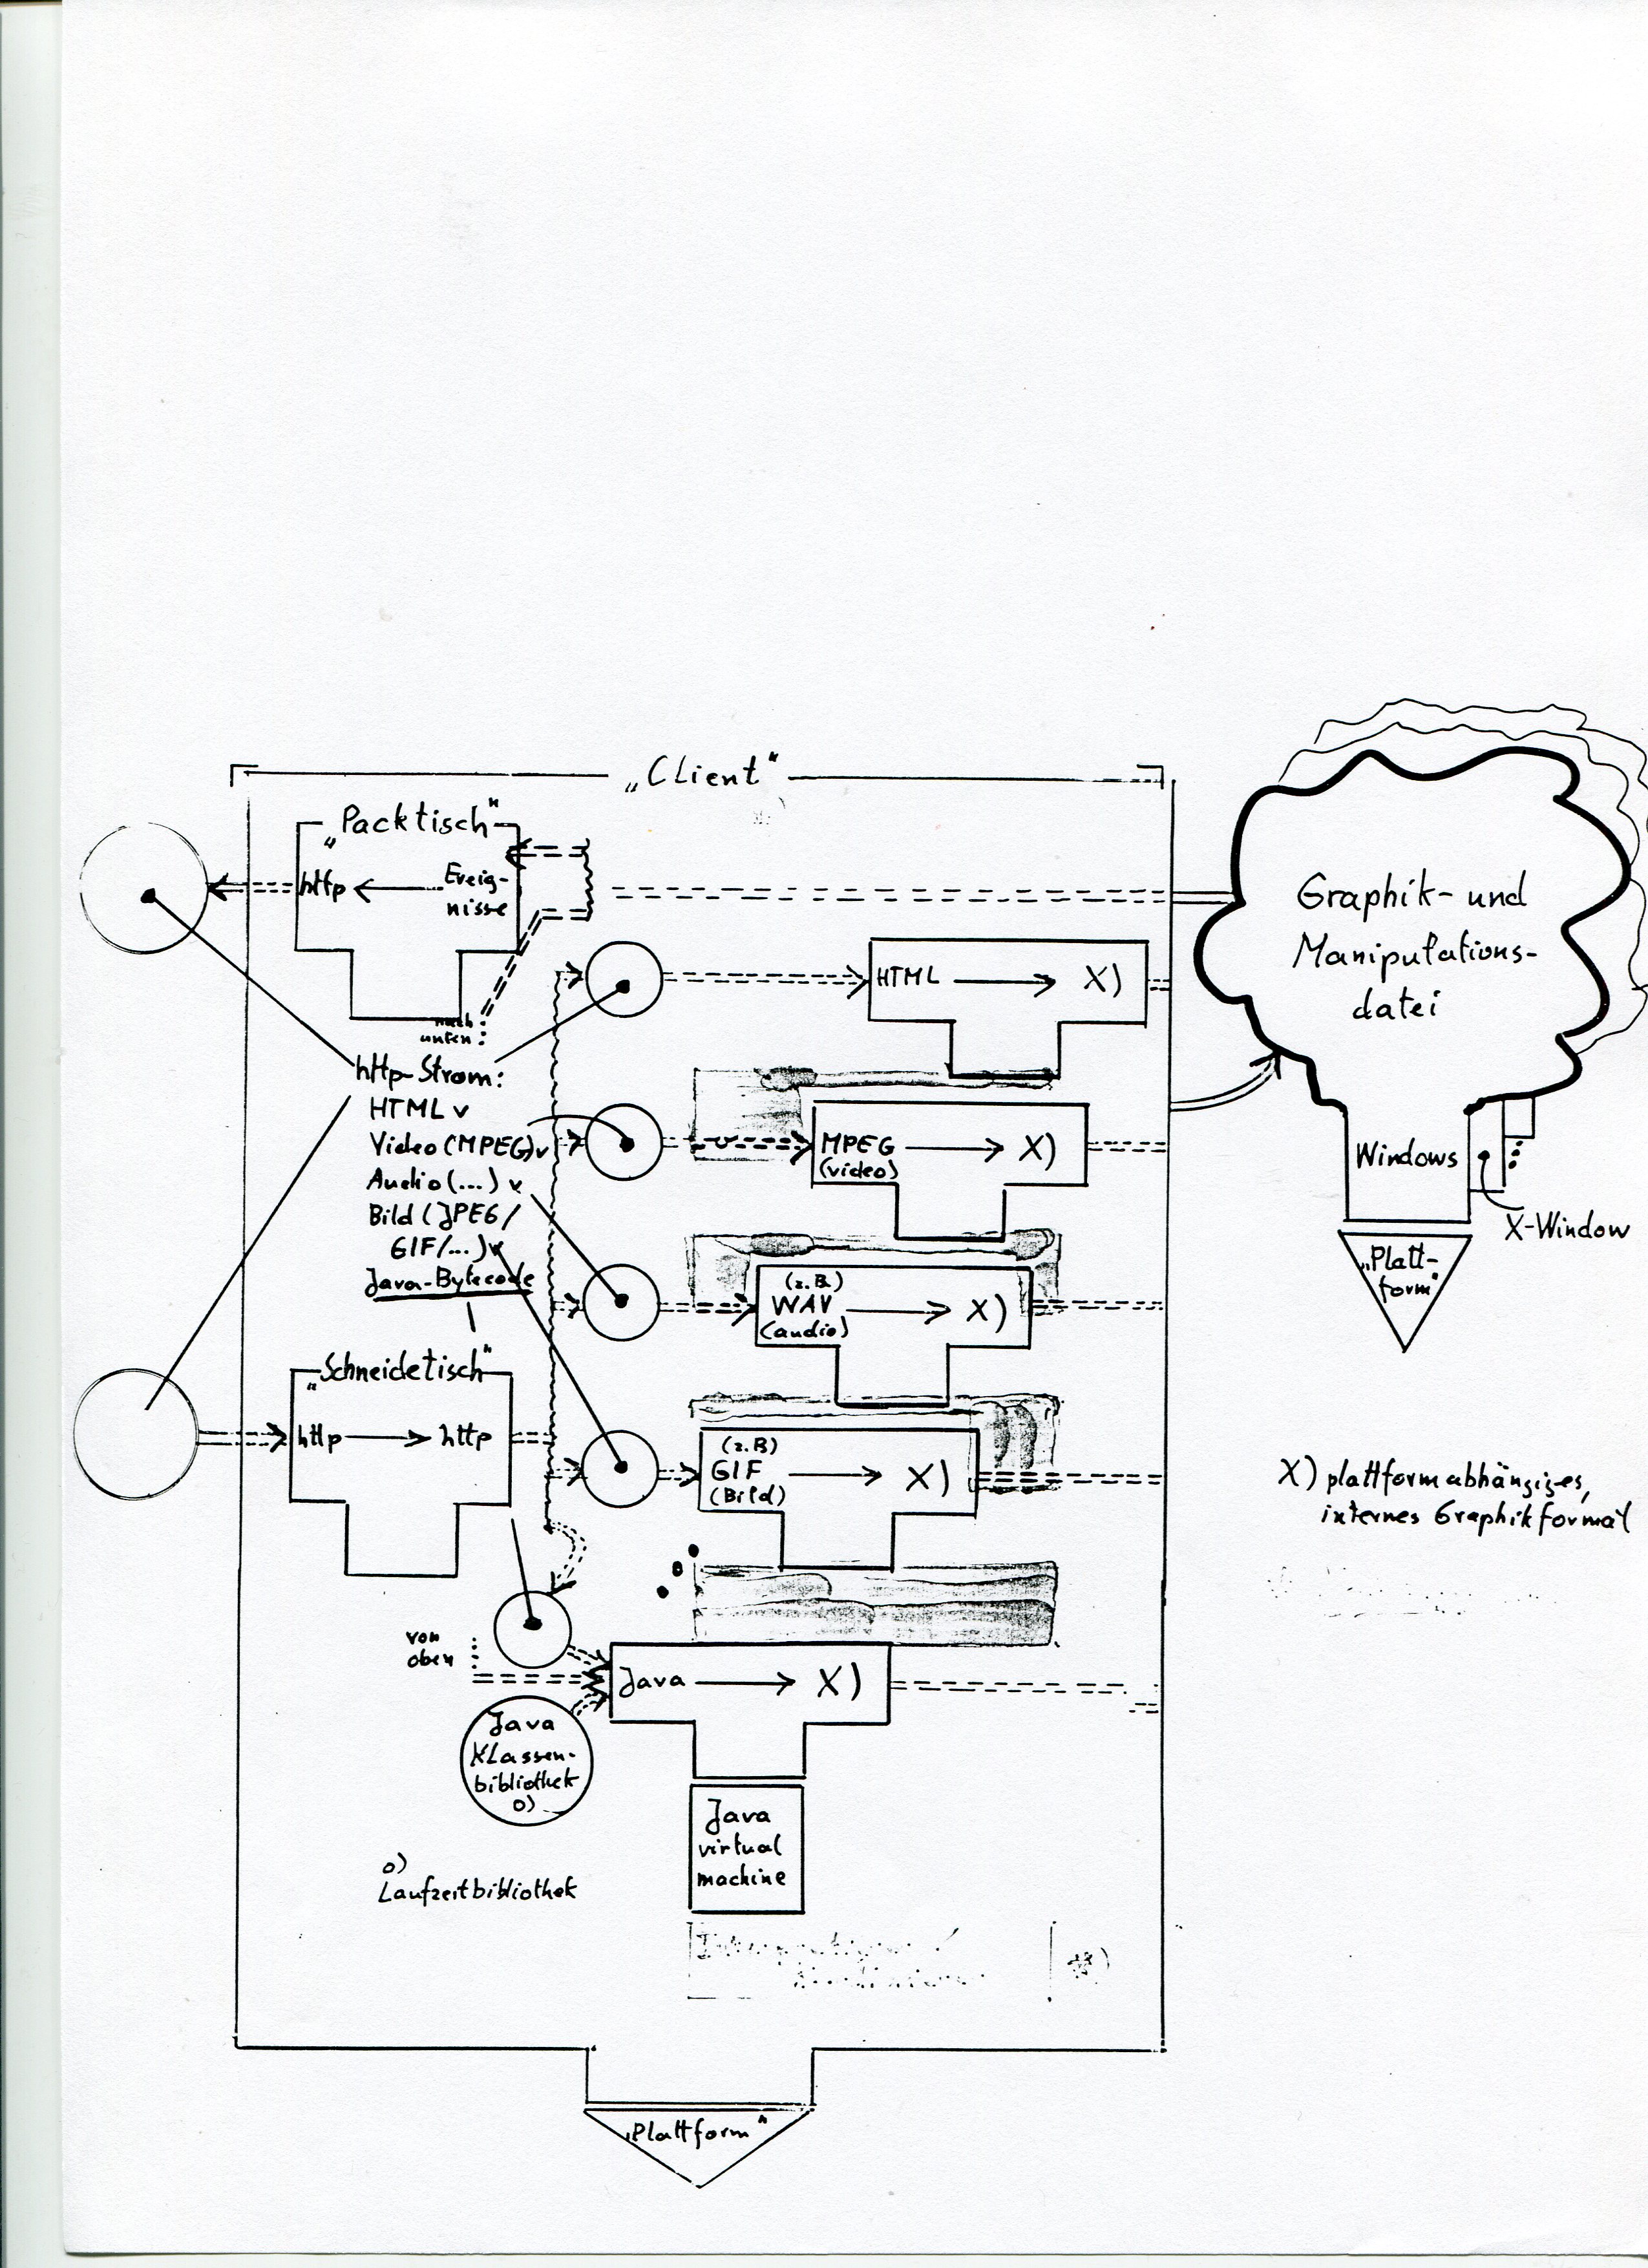 „Client“
„Packtisch“
http
Ereig-
nisse
nach
unten:
http-Strom:
HTML v
Video (MPEG) v
Audio (...) v
Bild (JPEG/
GIF/...) v
Java-Bytecode
„Schneidetisch“
http
http
HTML
X)
MPEG
(video)
X)
(z.B.)
WAV
(audio)
X)
(z.B)
GIF
(Bild)
X)
von
oben
Java
X)
Java
Klassen-
bibliothek
o)
Java
virtual
machine
o)
Laufzeitbibliothek
„Plattform“
Graphik- und
Manipulations-
datei
Windows
X-Window
„Platt-
form“
X) plattformabhängiges,
internes Graphikformat